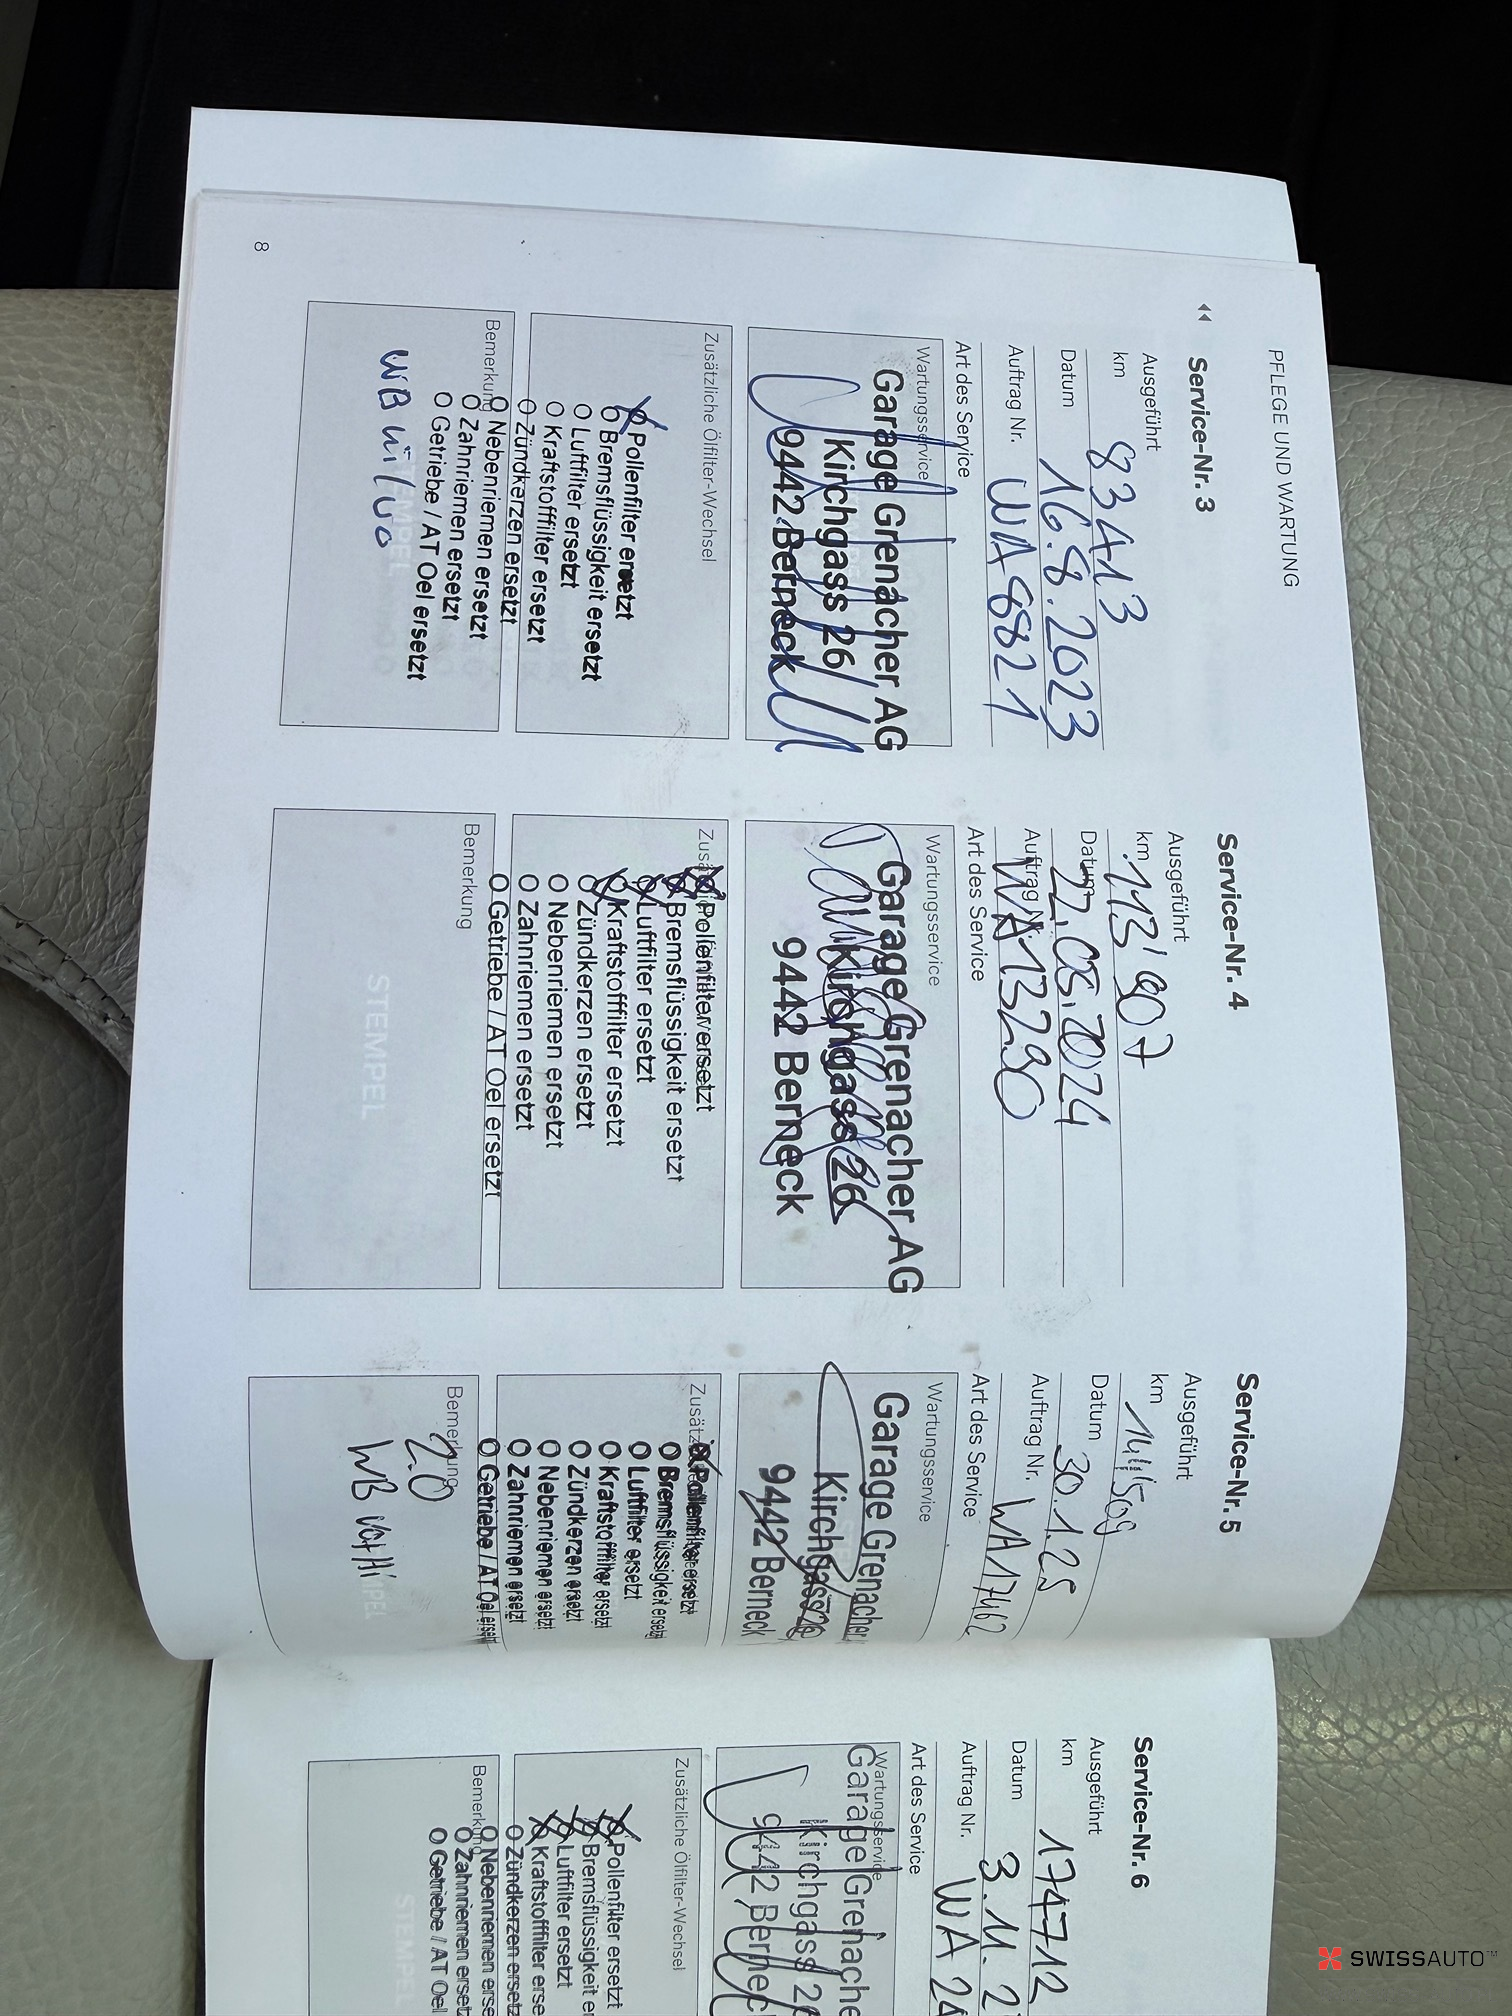 PFLEGE UND WARTUNG
Service-Nr. 3
Ausgeführt
km 83413
Datum 16.8.2023
Auftrag Nr. WA8821
Art des Service
Wartungsservice
Garage Grenacher AG
Kirchgass 26
9442 Berneck
Zusätzliche Ölfilter-Wechsel
Pollenfilter ersetzt
O Bremsflüssigkeit ersetzt
O Luftfilter ersetzt
O Kraftstofffilter ersetzt
O Zündkerzen ersetzt
O Nebenriemen ersetzt
O Zahnriemen ersetzt
O Getriebe / AT Oel ersetzt
Bemerkung
WB
8
Service-Nr. 4
Ausgeführt
km 113'907
Datum 22.05.2024
Auftrag Nr. WA13290
Art des Service
Wartungsservice
Garage Grenacher AG
Kirchgass 26
9442 Berneck
Pollenfilter ersetzt
Bremsflüssigkeit ersetzt
Luftfilter ersetzt
Kraftstofffilter ersetzt
O Zündkerzen ersetzt
O Nebenriemen ersetzt
O Zahnriemen ersetzt
O Getriebe / AT Oel ersetzt
Bemerkung
STEMPEL
Service-Nr. 5
Ausgeführt
km
Datum 30.1.25
Auftrag Nr. WA17462
Art des Service
Wartungsservice
Garage Grenacher
Kirchgass 26
9442 Berneck
Pollenfilter ersetzt
O Bremsflüssigkeit ersetzt
O Luftfilter ersetzt
O Kraftstofffilter ersetzt
O Zündkerzen ersetzt
O Nebenriemen ersetzt
O Zahnriemen ersetzt
O Getriebe / AT Oel ersetzt
Bemerkung
2.0
WB
Service-Nr. 6
Ausgeführt
km 174712
Datum 3.11.2
Auftrag Nr. WA 2
Art des Service
Wartungsservice
Garage Grenache
Kirchgass 26
9442 Bernec
Zusätzliche Ölfilter-Wechsel
Pollenfilter ersetzt
Bremsflüssigkeit er
Luftfilter ersetzt
Kraftstofffilter erse
O Zündkerzen ersetz
O Nebenriemen erse
O Zahnriemen erset
O Getriebe / AT Oel
Bemerkung
STEMPEL
SWISSAUTO™